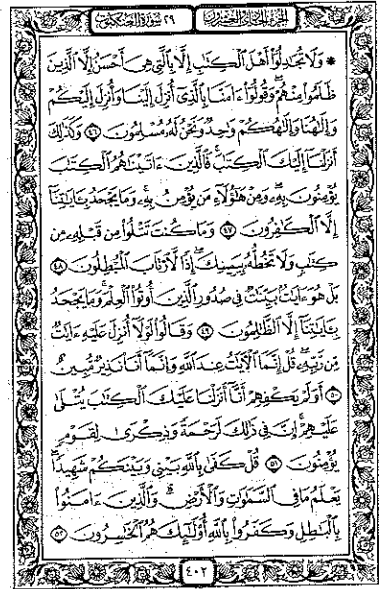 الجزء الحادي والعشرون ٢٩ سورة العنكبوت
* وَلَا تُجَٰدِلُوٓا۟ أَهْلَ ٱلْكِتَٰبِ إِلَّا بِٱلَّتِى هِىَ أَحْسَنُ إِلَّا ٱلَّذِينَ
ظَلَمُوا۟ مِنْهُمْ ۖ وَقُولُوٓا۟ ءَامَنَّا بِٱلَّذِىٓ أُنزِلَ إِلَيْنَا وَأُنزِلَ إِلَيْكُمْ
وَإِلَٰهُنَا وَإِلَٰهُكُمْ وَٰحِدٌ وَنَحْنُ لَهُۥ مُسْلِمُونَ ٤٦ وَكَذَٰلِكَ
أَنزَلْنَآ إِلَيْكَ ٱلْكِتَٰبَ ۚ فَٱلَّذِينَ ءَاتَيْنَٰهُمُ ٱلْكِتَٰبَ
يُؤْمِنُونَ بِهِۦ ۖ وَمِنْ هَٰٓؤُلَآءِ مَن يُؤْمِنُ بِهِۦ ۚ وَمَا يَجْحَدُ بِـَٔايَٰتِنَآ
إِلَّا ٱلْكَٰفِرُونَ ٤٧ وَمَا كُنتَ تَتْلُوا۟ مِن قَبْلِهِۦ مِن
كِتَٰبٍ وَلَا تَخُطُّهُۥ بِيَمِينِكَ ۖ إِذًا لَّٱرْتَابَ ٱلْمُبْطِلُونَ ٤٨
بَلْ هُوَ ءَايَٰتٌۢ بَيِّنَٰتٌ فِى صُدُورِ ٱلَّذِينَ أُوتُوا۟ ٱلْعِلْمَ ۚ وَمَا يَجْحَدُ
بِـَٔايَٰتِنَآ إِلَّا ٱلظَّٰلِمُونَ ٤٩ وَقَالُوا۟ لَوْلَآ أُنزِلَ عَلَيْهِ ءَايَٰتٌ
مِّن رَّبِّهِۦ ۖ قُلْ إِنَّمَا ٱلْـَٔايَٰتُ عِندَ ٱللَّهِ وَإِنَّمَآ أَنَا۠ نَذِيرٌ مُّبِينٌ
٥٠ أَوَلَمْ يَكْفِهِمْ أَنَّآ أَنزَلْنَا عَلَيْكَ ٱلْكِتَٰبَ يُتْلَىٰ
عَلَيْهِمْ ۚ إِنَّ فِى ذَٰلِكَ لَرَحْمَةً وَذِكْرَىٰ لِقَوْمٍ
يُؤْمِنُونَ ٥١ قُلْ كَفَىٰ بِٱللَّهِ بَيْنِى وَبَيْنَكُمْ شَهِيدًا ۖ
يَعْلَمُ مَا فِى ٱلسَّمَٰوَٰتِ وَٱلْأَرْضِ ۗ وَٱلَّذِينَ ءَامَنُوا۟
بِٱلْبَٰطِلِ وَكَفَرُوا۟ بِٱللَّهِ أُو۟لَٰٓئِكَ هُمُ ٱلْخَٰسِرُونَ ٥٢
٤٠٢